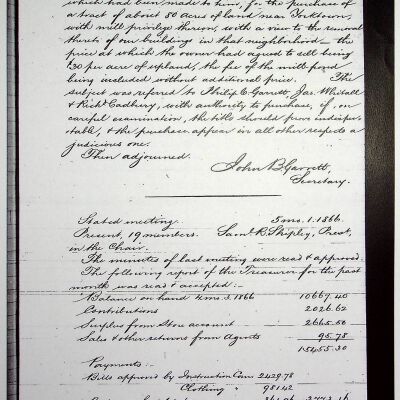 which had been made to him, for the purchase of
a tract of about 50 acres of land near Yorktown,
with mill privilege thereon, with a view to the removal
thereto of our buildings in that neighborhood — the
price at which the owner had agreed to sell being
$30 per acre of upland, the fee of the mill pond
being included without additional price. The
subject was referred to Philip C. Garrett, Jas. Whitall
& Richd Cadbury, with authority to purchase if on
careful examination, the title should prove indispu-
table, & the purchase appear in all other respects a
judicious one.
Then adjourned.
John B. Garrett,
Secretary.
Stated meeting. 5 mo. 1. 1866.
Present, 19 members. Saml R. Shipley, Prest,
in the Chair.
The minutes of last meeting were read & approved.
The following report of the Treasurer for the past
month was read & accepted:—
Balance on hand 4 mo. 3. 1866 10667.40
Contributions 2026.62
Surplus from Store account 2665.50
Sales & other returns from Agents 95.78
15455.30
Payments:—
Bills approved by Instruction Com 2429.78
Clothing " 981.42